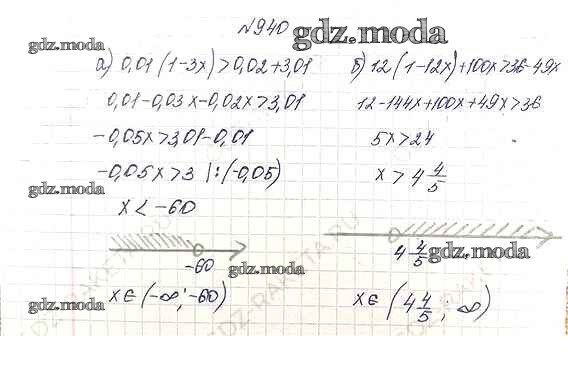 №940
gdz.moda
gdz.moda
а) 0,01(1-3x)>0,02+3,01
0,01-0,03x-0,02x>3,01
-0,05x>3,01-0,01
-0,05x>3 |:(-0,05)
gdz.moda
x<-60
-60
gdz.moda
x∈(-∞;-60)
gdz.moda
б) 12(1-12x)+100x>36-49x
12-144x+100x+49x>36
5x>24
x>4 4/5
4 4/5
gdz.moda
x∈(4 4/5; ∞)
GDZ-RAKETA.RU